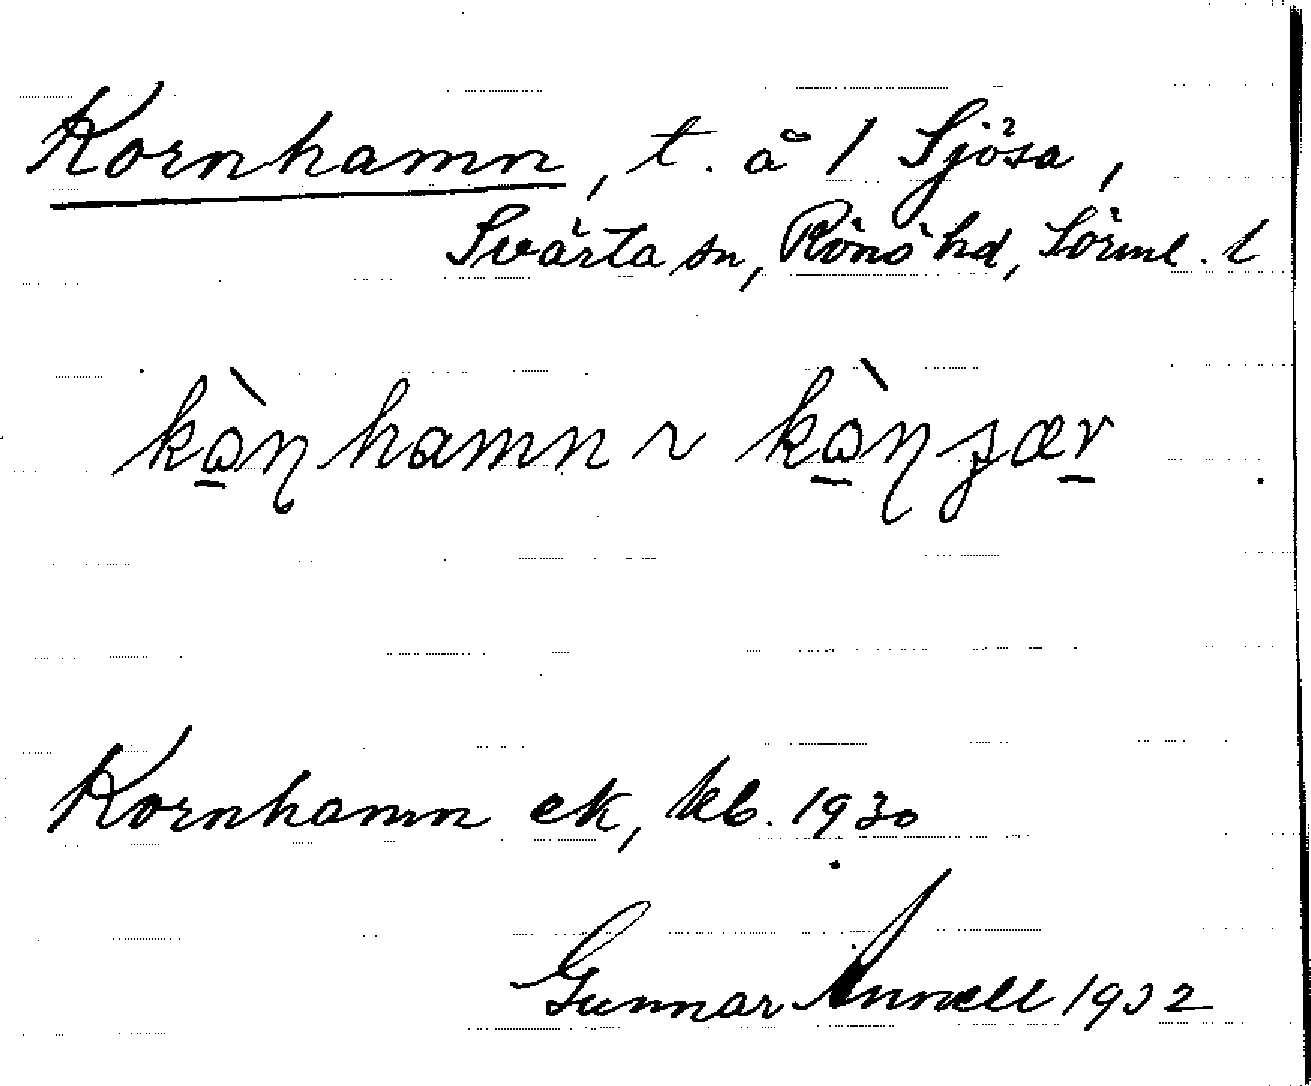 Kornhamn, t. å 1 Sjösa,
Svärta sn, Rönö hd, Sörml. l
kò̱ɳhamn ~ kò̱ɳʒæṟ
Kornhamn ek, kb. 1930
Gunnar Annell 1932